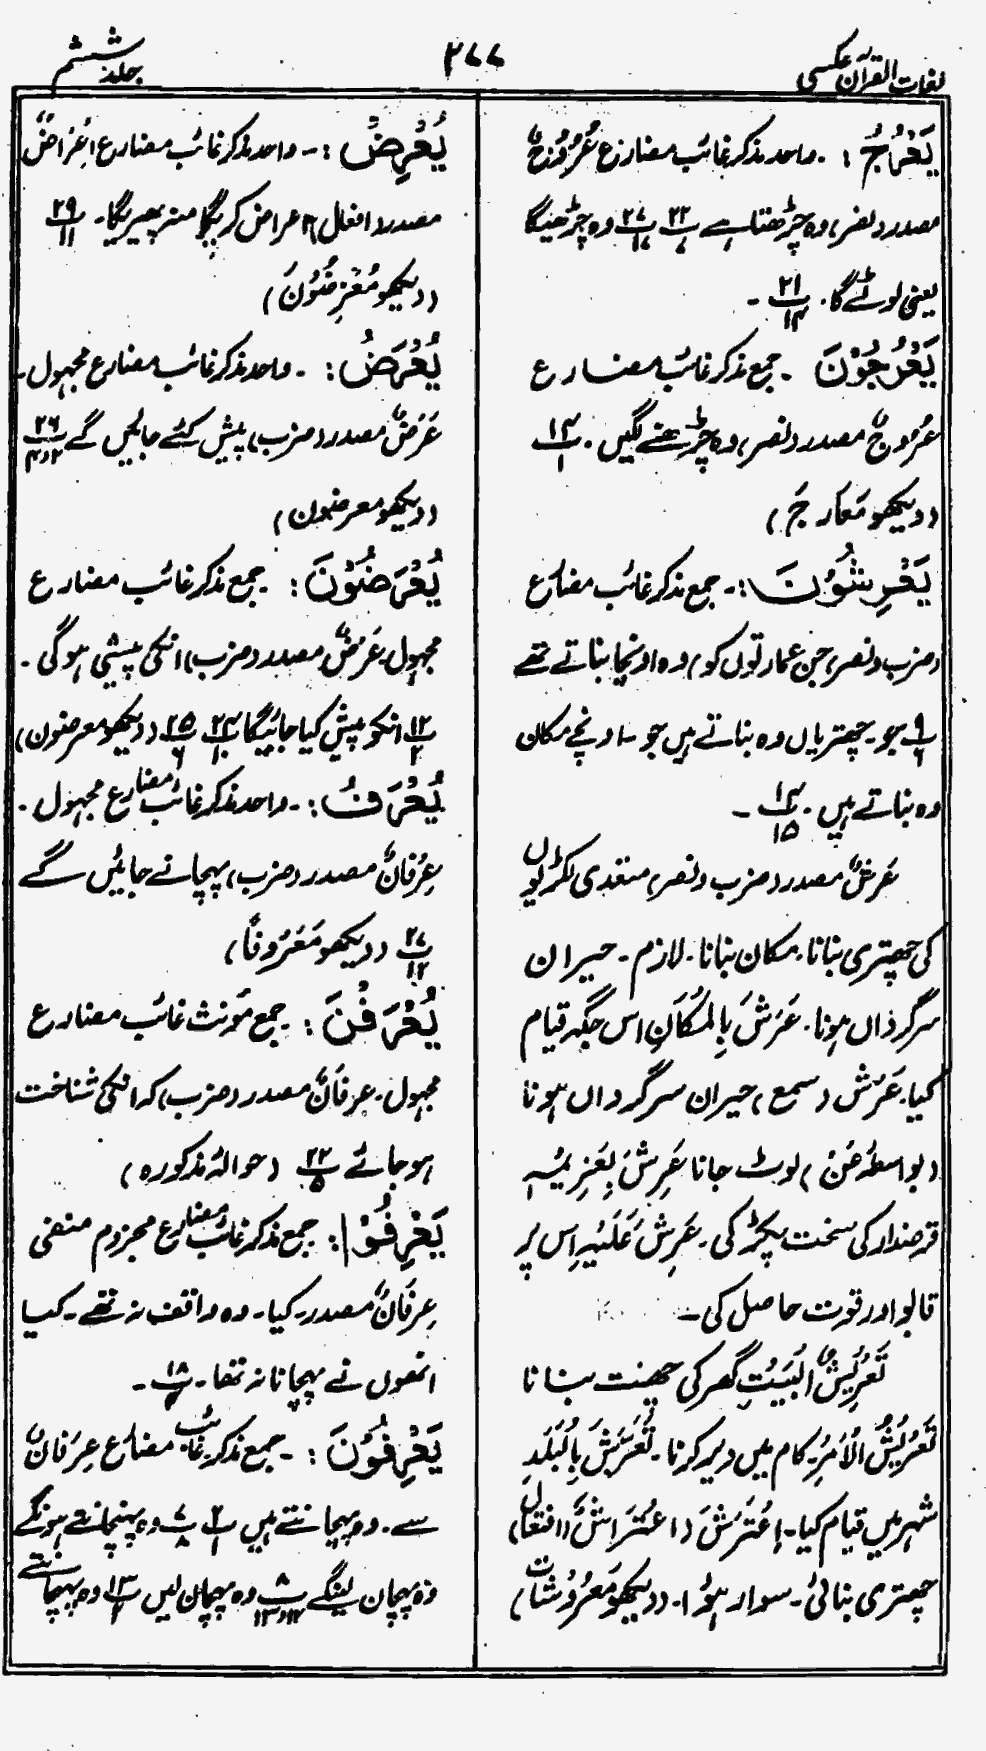 لغات القرآن عکسی
۲۷۷
جلد ششم
یَعْرُجُ :۔ واحد مذکر غائب مضارع عُرُوْجٌ
مصدر (نصر) وہ چڑھتا ہے ۲۲/۷ ۲۷/۱۷ وہ چڑھیگا
یعنی لوٹے گا۔ ۲۱/۱۴ ۔
یَعْرُجُوْنَ ۔ جمع مذکر غائب مضارع
عُرُوجٌ مصدر (نصر) وہ چڑھنے لگیں ۔ ۱۴/۱
(دیکھو مَعَارِجَ)
یَعْرِشُوْنَ :۔ جمع مذکر غائب مضارع
(ضرب و نصر) جن عمارتوں کو) وہ اونچا بناتے تھے
۹/۶ جو چھتریاں وہ بناتے ہیں جو اونچے مکان
وہ بناتے ہیں ۔ ۱۴/۱۵ ۔
عَرشٌ مصدر (ضرب و نصر) متعدی لکڑیوں
کی چھتری بنانا۔ مکان بنانا۔ لازم ۔ حیران
سرگرداں ہونا۔ عَرَشَ بِالْمَکَانِ اس جگہ قیام
کیا۔ عَرَش (سمع) حیران سرگرداں ہونا
(بواسطہ عَنْ) لوٹ جانا عَرِشَ بِغَرِیْمِہ
قرضدار کی سخت پکڑ کی ۔ عَرِشَ عَلَیْہِ اس پر
قابو اور قوت حاصل کی ۔
تَعْرِیْشُ الْبَیْتِ گھر کی چھت بنانا
تَعْرِیْشُ الْاَمْرِ کام میں دیر کرنا ۔ تَعَرَّشَ بِالْبَلَدِ
شہر میں قیام کیا۔ اِعْتَرَشَ (اعْتَرَاشٌ (افتعال)
چھتری بنائی ۔ سوار ہوا ۔ (دیکھو مَعْرُوْشَات)
یُعْرِضُ :۔ واحد مذکر غائب مضارع اِعْرَاضٌ
مصدر (افعال) اعراض کریگا منہ پھیریگا ۔ ۲۹/۱۱
(دیکھو مُعْرِضُوْنَ)
یُعْرَضُ :۔ واحد مذکر غائب مضارع مجہول ۔
عَرَضٌ مصدر (ضرب) پیش کئے جائیں گے ۲۶/۲و۴
(دیکھو معرضون)
یُعْرَضُوْنَ :۔ جمع مذکر غائب مضارع
مجہول ۔ عَرَضٌ مصدر (ضرب) انکی پیشی ہو گی ۔
۱۲/۲ انکو پیش کیا جائیگا ۲۴/۱۰ ۲۵/۶ (دیکھو معرضون)
یُعْرَفُ :۔ واحد مذکر غائب مضارع مجہول ۔
عِرْفَانٌ مصدر (ضرب) پہچانے جائیں گے
۲۷/۱۲ (دیکھو مَعْرُوفًا)
یُعْرَفْنَ :۔ جمع مؤنث غائب مضارع
مجہول ۔ عِرفَانٌ مصدر (ضرب) کہ انکی شناخت
ہو جائے ۲۲/۵ (حوالہ مذکورہ)
یَعْرِفُوْا :۔ جمع مذکر غائب مضارع مجزوم منفی
عِرفَانٌ مصدر ۔ کیا ۔ وہ واقف نہ تھے ۔ کیا
انھوں نے پہچانا نہ تھا ۔ ۱۸/۴ ۔
یَعْرِفُوْنَ :۔ جمع مذکر غائب مضارع عِرَفَانٌ
سے ۔ وہ پہچانتے ہیں ۲/۱ ۷/۸ وہ پہچانتے ہونگے
وہ پہچان لینگے ۸/۱۲و۱۳ وہ پہچان لیں ۱۴/۱ وہ پہچانتے